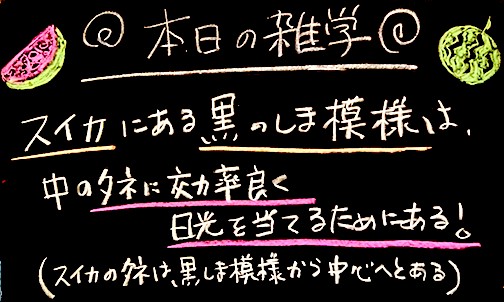 本日の雑学
スイカにある黒のしま模様は、
中のタネに効率良く
日光を当てるためにある!
(スイカのタネは、黒しま模様から中心へとある)